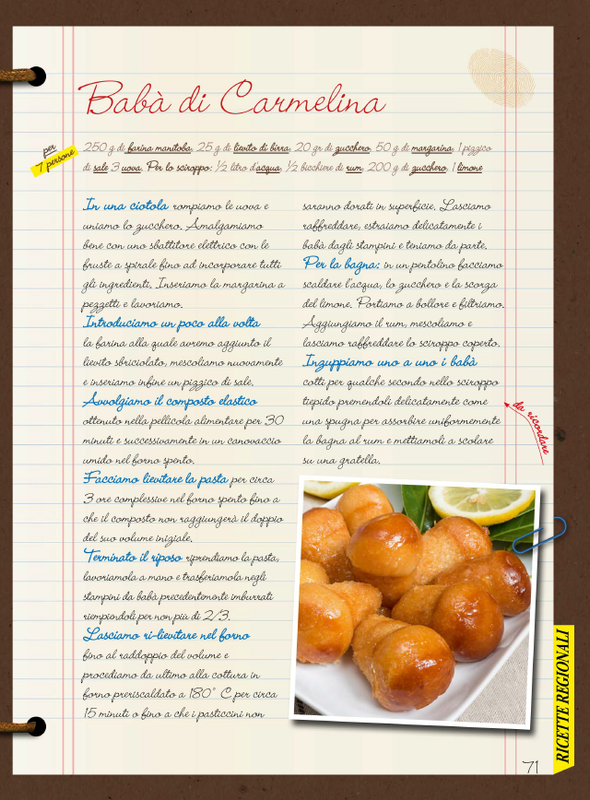 Babà di Carmelina
per
7 persone
250 g di farina manitoba, 25 g di lievito di birra, 20 gr di zucchero, 50 g di margarina, 1 pizzico
di sale 3 uova. Per lo sciroppo: ½ litro d'acqua, ½ bicchiere di rum, 200 g di zucchero, 1 limone
In una ciotola rompiamo le uova e
uniamo lo zucchero. Amalgamiamo
bene con uno sbattitore elettrico con le
fruste a spirale fino ad incorporare tutti
gli ingredienti. Inseriamo la margarina a
pezzetti e lavoriamo.
Introduciamo un poco alla volta
la farina alla quale avremo aggiunto il
lievito sbriciolato, mescoliamo nuovamente
e inseriamo infine un pizzico di sale.
Avvolgiamo il composto elastico
ottenuto nella pellicola alimentare per 30
minuti e successivamente in un canovaccio
umido nel forno spento.
Facciamo lievitare la pasta per circa
3 ore complessive nel forno spento fino a
che il composto non raggiungerà il doppio
del suo volume iniziale.
Terminato il riposo riprendiamo la pasta,
lavoriamola a mano e trasferiamola negli
stampini da babà precedentemente imburrati
riempiendoli per non più di 2/3.
Lasciamo ri-lievitare nel forno
fino al raddoppio del volume e
procediamo da ultimo alla cottura in
forno preriscaldato a 180° C per circa
15 minuti o fino a che i pasticcini non
saranno dorati in superficie. Lasciamo
raffreddare, estraiamo delicatamente i
babà dagli stampini e teniamo da parte.
Per la bagna: in un pentolino facciamo
scaldare l'acqua, lo zucchero e la scorza
del limone. Portiamo a bollore e filtriamo.
Aggiungiamo il rum, mescoliamo e
lasciamo raffreddare lo sciroppo coperto.
Inzuppiamo uno a uno i babà
cotti per qualche secondo nello sciroppo
tiepido premendoli delicatamente come
una spugna per assorbire uniformemente
la bagna al rum e mettiamoli a scolare
su una gratella.
da ricordare
RICETTE REGIONALI
71